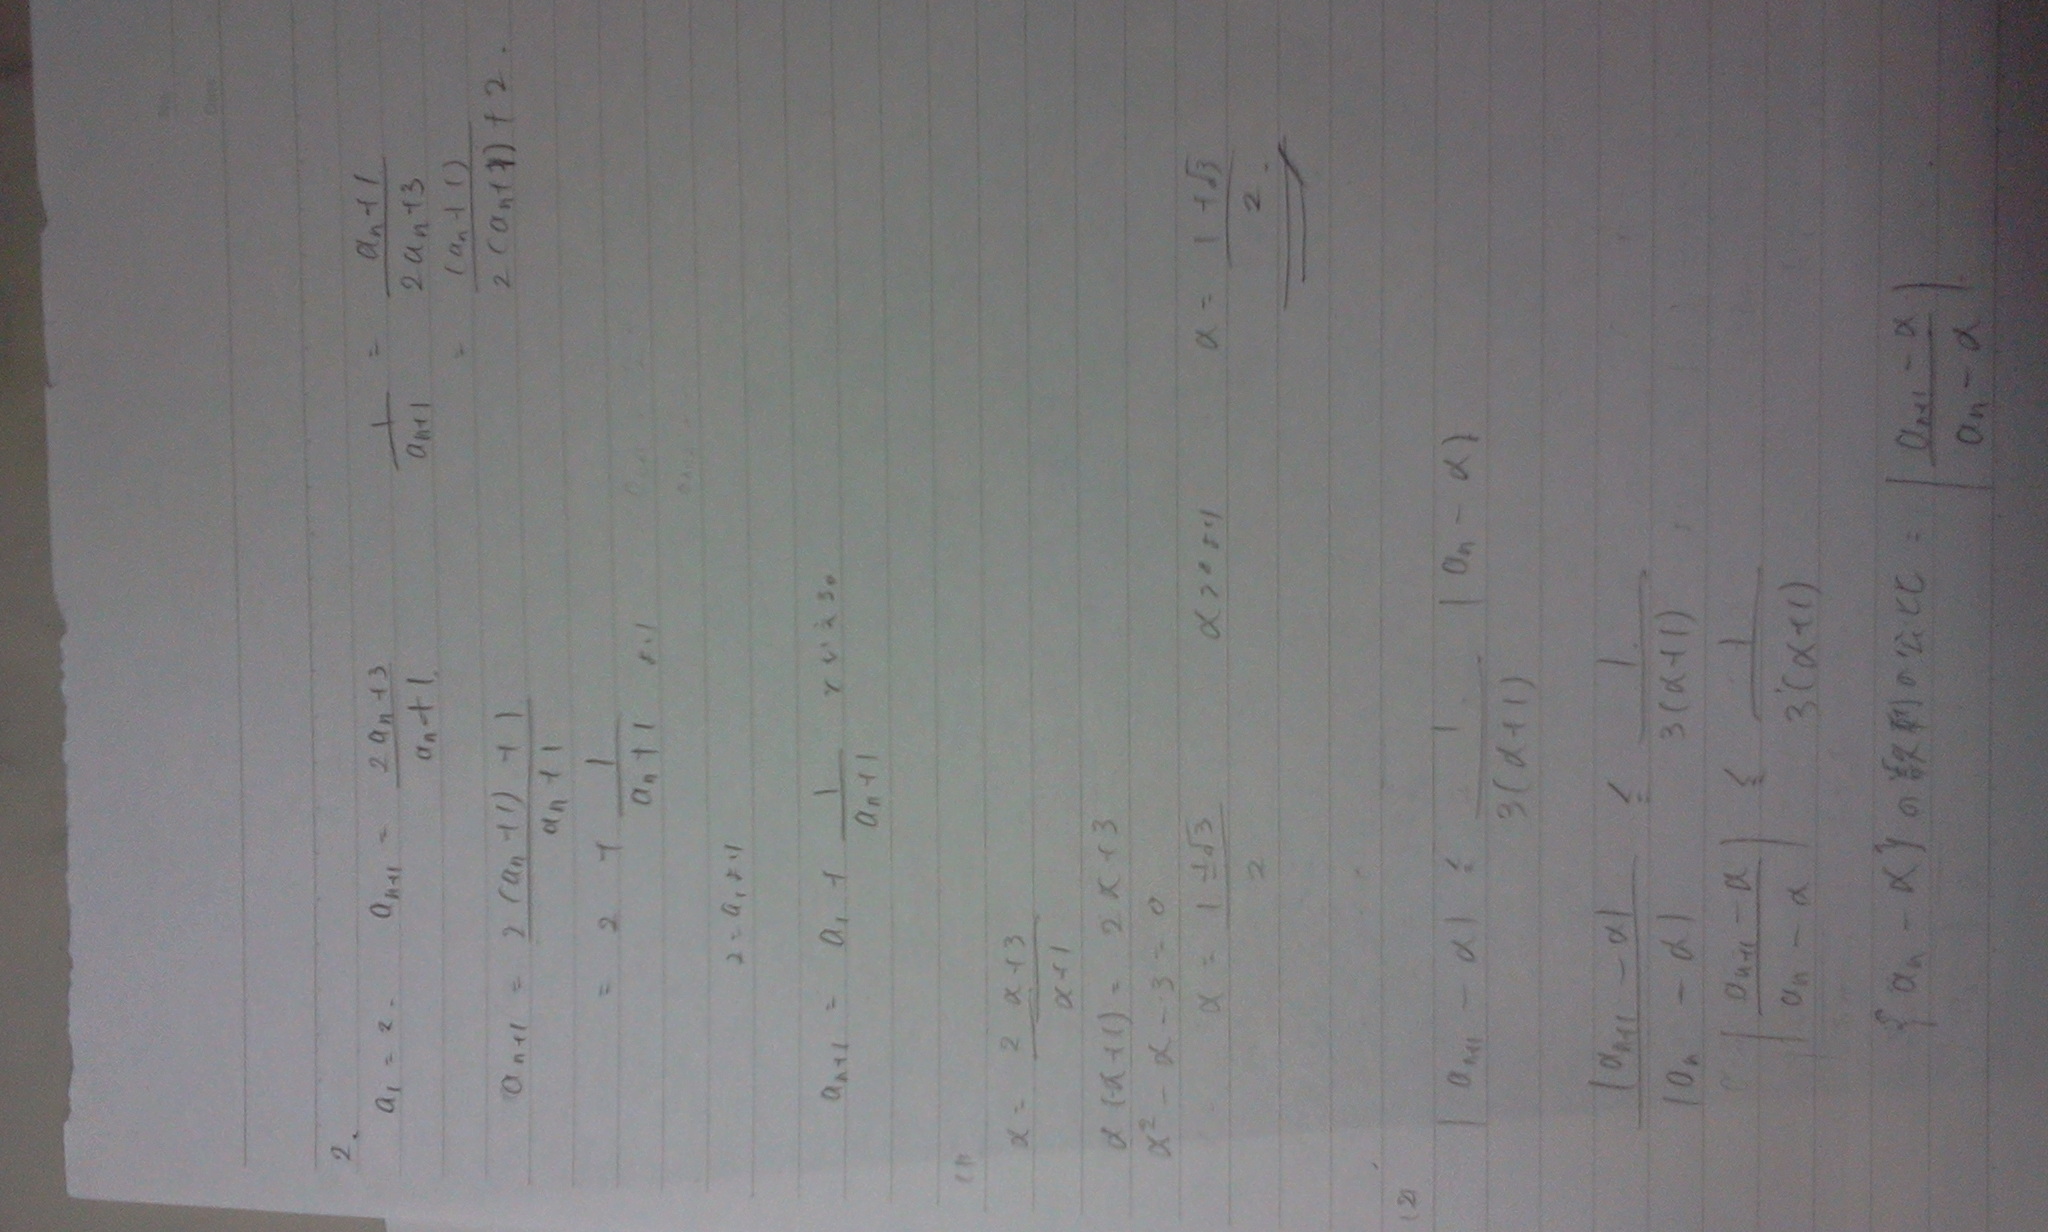 2.
a₁ = 2. aₙ₊₁ = (2aₙ+3)/(aₙ+1) 1/aₙ₊₁ = (aₙ+1)/(2aₙ+3)
= (aₙ+1)/(2(aₙ+1)+2).
aₙ₊₁ = (2(aₙ+1)+1)/(aₙ+1)
= 2 + 1/(aₙ+1) より
2 = a₁より
aₙ₊₁ = a₁ + 1/(aₙ+1) といえる。
(1)
α = (2α+3)/(α+1)
α(α+1) = 2α+3
α² - α - 3 = 0
α = (1±√3)/2 α>0より α = (1+√3)/2.
(2)
|aₙ₊₁ - α| ≦ 1/(3(α+1)) |aₙ - α|
|aₙ₊₁ - α|/|aₙ - α| ≦ 1/(3(α+1))
|(aₙ₊₁ - α)/(aₙ - α)| ≦ 1/(3(α+1))
{aₙ - α}の数列の公比 = |(aₙ₊₁ - α)/(aₙ - α)|